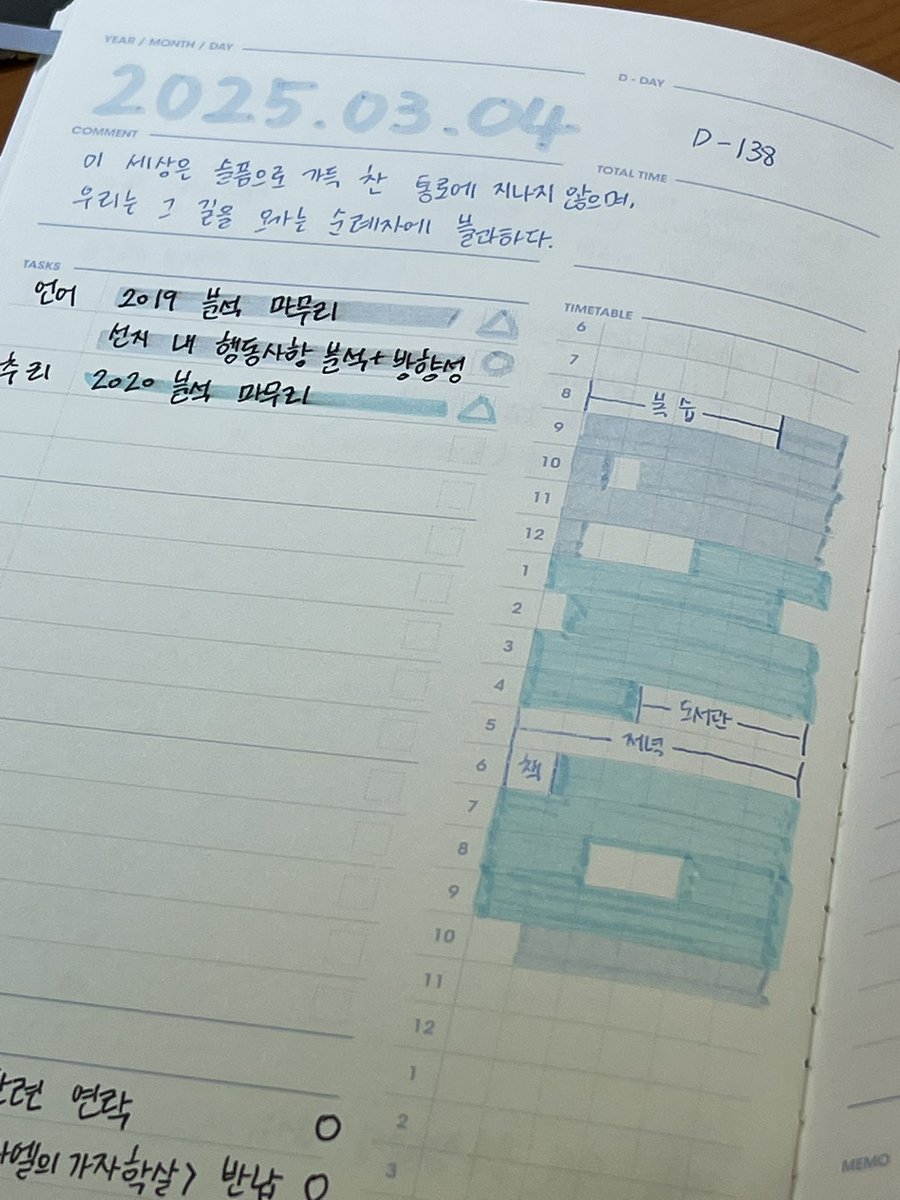 YEAR / MONTH / DAY
2025.03.04
D - DAY
D-138
COMMENT
이 세상은 슬픔으로 가득 찬 통로에 지나지 않으며,
우리는 그 길을 오가는 순례자에 불과하다.
TOTAL TIME
TASKS
언어 2019 분석 마무리
선지 내 행동사항 분석+ 방향성
추리 2020 분석 마무리
TIMETABLE
6
7
8 복습
9
10
11
12
1
2
3
4 도서관
5 저녁
6 책
7
8
9
10
11
12
1
2
3
관련 연락 O
가자학살> 반납 O
MEMO